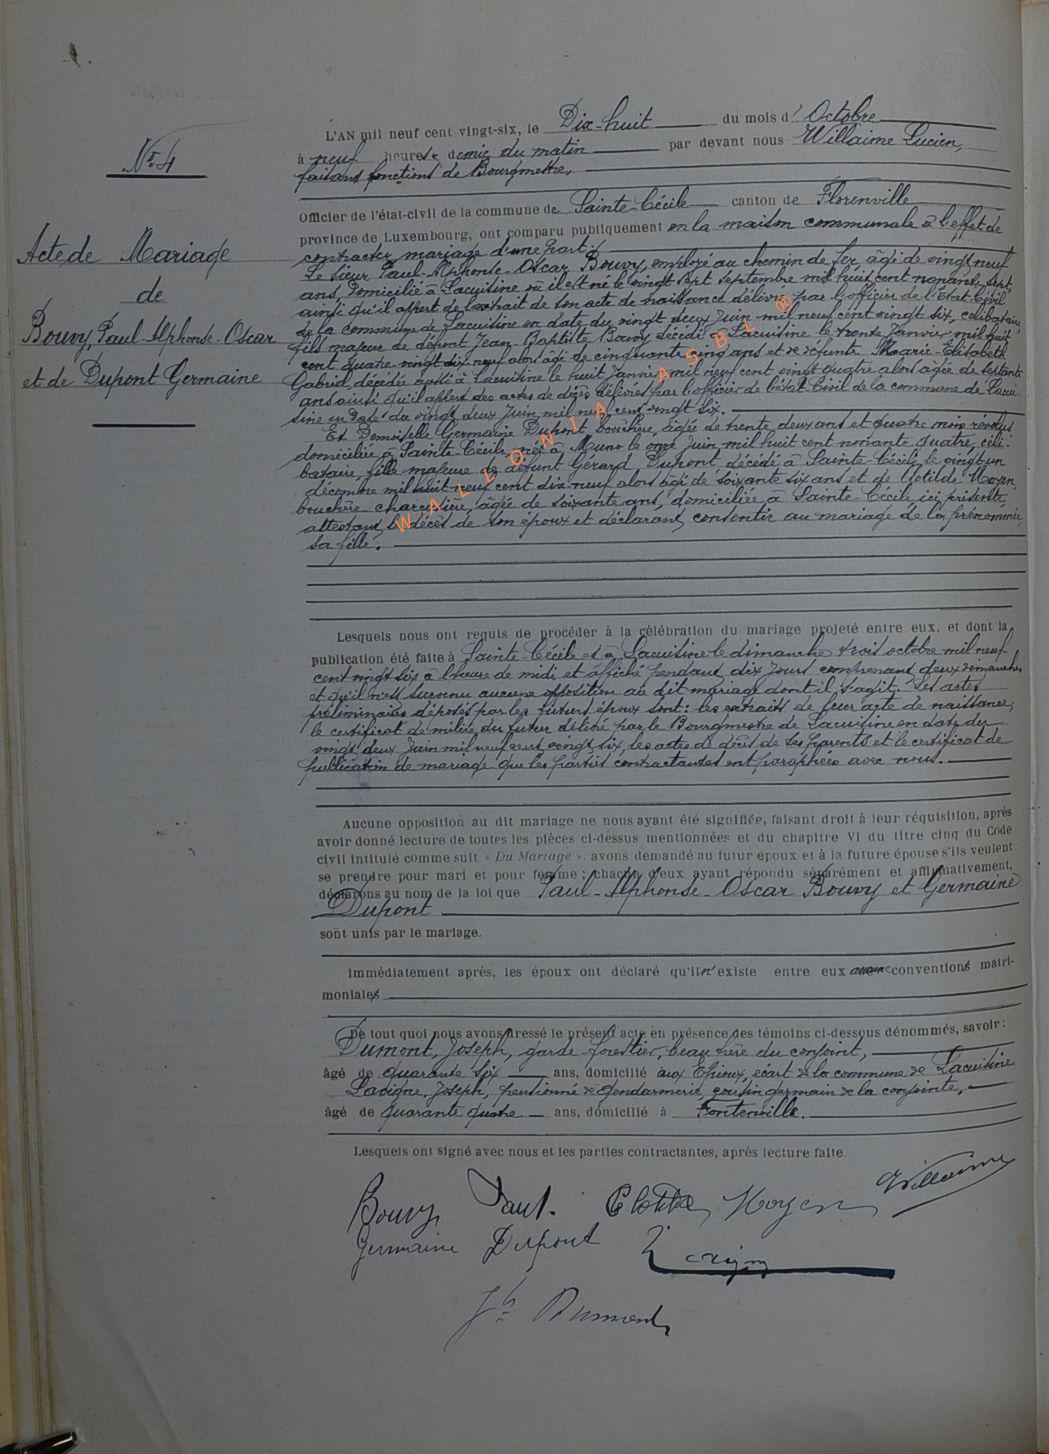 Nº 4
Acte de Mariage
de
Bouvy, Paul-Alphonse-Oscar
et de Dupont Germaine
L'AN mil neuf cent vingt-six, le Dix-huit du mois d'Octobre
à neuf heures e demie du matin par devant nous Willaime Lucien,
faisant fonctions de Bourgmestre,
Officier de l'état-civil de la commune de Sainte-Cécile canton de Florenville
province de Luxembourg, ont comparu publiquement en la maison communale à l'effet de
contracter mariage d'une part:
Le sieur Paul-Alphonse-Oscar Bouvy, employé au chemin de fer, âgé de vingt neuf
ans domicilié à Lacuisine où il est né le vingt sept septembre mil huit cent nonante sept
ainsi qu'il appert de l'extrait de son acte de naissance délivré par l'officier de l'Etat Civil
de la commune de Lacuisine en date du vingt deux Juin mil neuf cent vingt six, célibataire
fils majeur de défunt Jean-Baptiste Bouvy décédé à Lacuisine le trente Janvier mil huit
cent quatre-vingt-dix-neuf alors âgé de cinquante cinq ans et de défunte Marie-Elisabeth
Gabriel, décédée aussi à Lacuisine le huit Janvier mil neuf cent vingt quatre alors âgée de septante
ans ainsi qu'il appert des actes de décès délivrés par l'officier de l'état-Civil de la commune de Lacui-
sine en date du vingt deux Juin mil neuf cent vingt six.
Et Demoiselle Germaine Dupont bouchère, âgée de trente deux ans et quatre mois révolus
domiciliée à Sainte-Cécile, née à Muno le onze Juin mil huit cent nonante quatre, céli-
bataire, fille majeure de défunt Gérard Dupont décédé à Sainte-Cécile le vingt un
décembre mil huit neuf cent dix neuf alors âgé de soixante six ans et de Clotilde Noyen
bouchère charcutière, âgée de soixante ans, domiciliée à Sainte-Cécile ici présente
attestant le décès de son époux et déclarant consentir au mariage de la prénommée
sa fille.
WALLONIA ASBL ©
Lesquels nous ont requis de procéder à la célébration du mariage projeté entre eux, et dont la
publication été faite à Sainte-Cécile et à Lacuisine le dimanche trois octobre mil neuf
cent vingt six à l'heure de midi et affiché pendant dix jours comprenant deux dimanches
et qu'il n'est survenu aucune opposition au dit mariage dont il s'agit. Les actes
préliminaires déposés par les futurs époux sont: les extraits de leur acte de naissance,
le certificat de milice du futur délivré par le Bourgmestre de Lacuisine en date du
vingt deux Juin mil neuf cent vingt six, les actes de décès de ses parents et le certificat de
publication de mariage que les parties contractantes ont paraphés avec nous.
Aucune opposition au dit mariage ne nous ayant été signifiée, faisant droit à leur réquisition, après
avoir donné lecture de toutes les pièces ci-dessus mentionnées et du chapitre VI du titre cinq du Code
civil intitulé comme suit « Du Mariage », avons demandé au futur époux et à la future épouse s'ils veulent
se prendre pour mari et pour femme; chacun d'eux ayant répondu séparément et affirmativement,
déclarons au nom de la loi que Paul-Alphonse-Oscar Bouvy et Germaine
Dupont
sont unis par le mariage.
Immédiatement après, les époux ont déclaré qu'il n'existe entre eux aucune conventions matri-
moniales
De tout quoi nous avons dressé le présent acte en présence des témoins ci-dessous dénommés, savoir:
Dumont, Joseph, garde-forestier, beau frère du conjoint,
âgé de quarante six ans, domicilié aux Epioux, écart de la commune de Lacuisine
Lavigne, Joseph, pensionné de Gendarmerie, cousin germain de la conjointe,
âgé de quarante quatre ans, domicilié à Fontenoille.
Lesquels ont signé avec nous et les parties contractantes, après lecture faite.
Bouvy Paul. Clotilde Noyen Willaime
Germaine Dupont
Jh Dumont